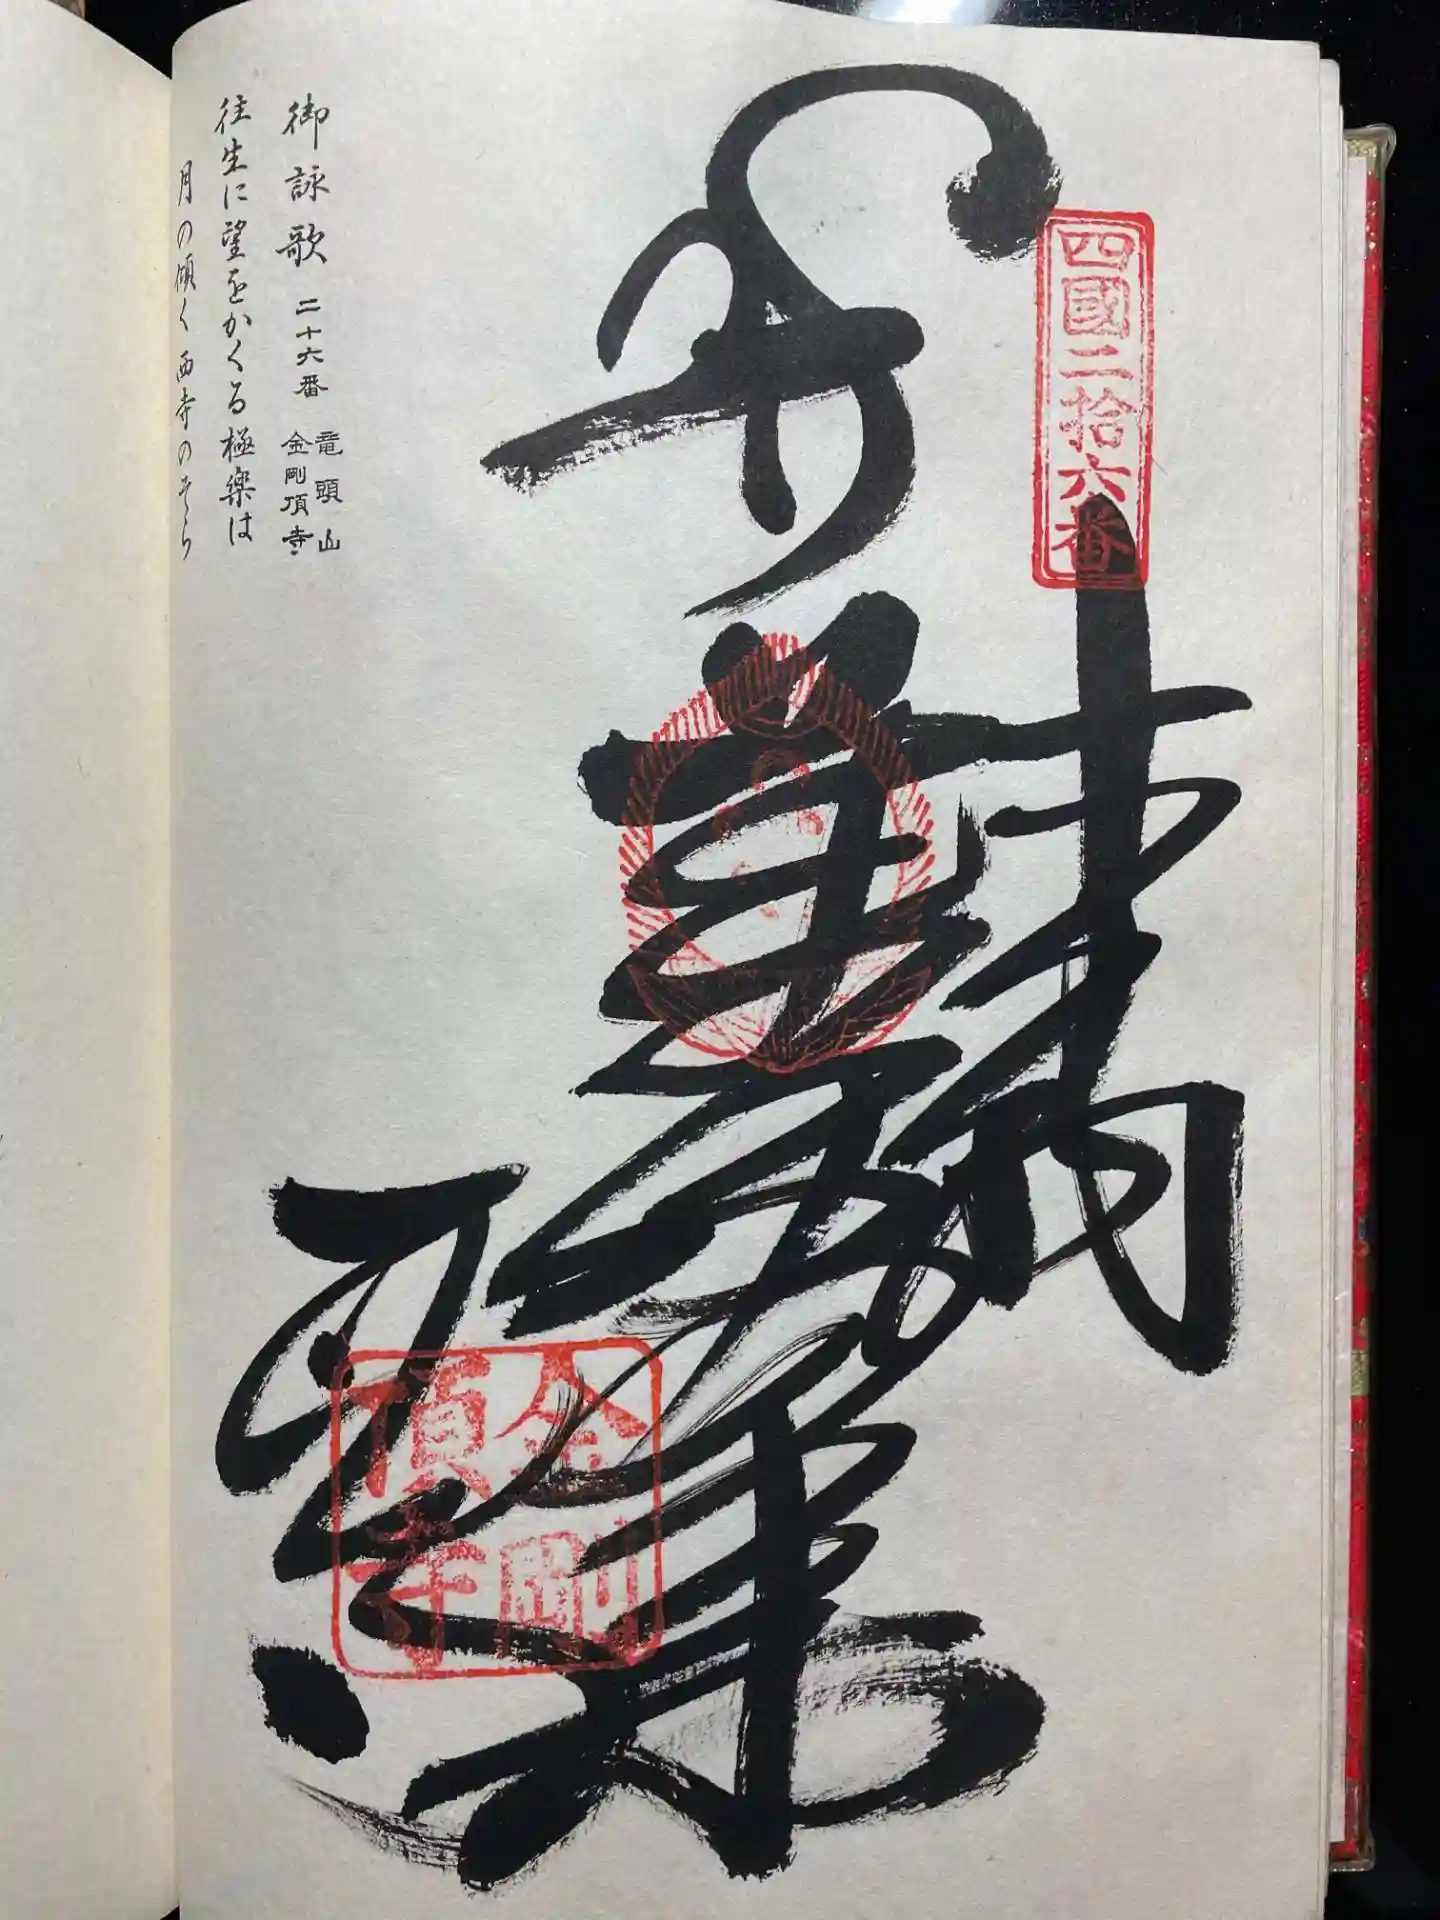 四國二拾六番
奉納
金剛
頂寺
御詠歌 二十六番 竜頭山
金剛頂寺
往生に望をかくる極楽は
月の傾く西寺のそら